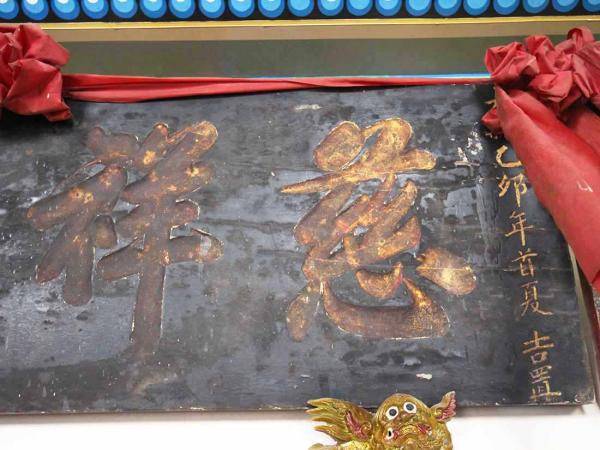 慈祥
乙卯年首夏 吉置